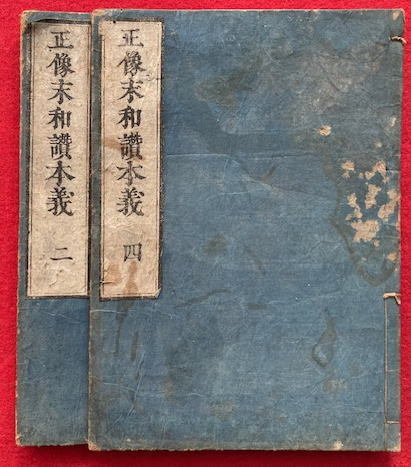 正像末和讃本義 四
正像末和讃本義 二